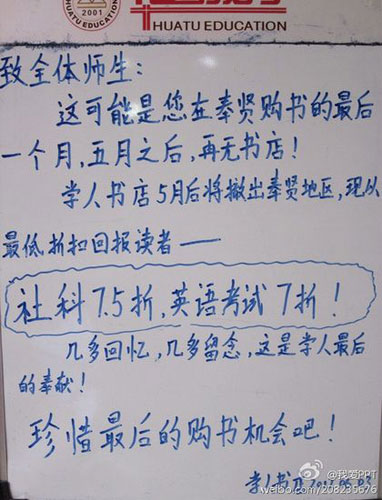 2001
HUATU EDUCATION
HUATU EDUCATION
致全体师生：
这可能是您在奉贤购书的最后
一个月，五月之后，再无书店！
学人书店5月后将撤出奉贤地区，现以
最低折扣回报读者——
社科7.5折，英语考试7折！
几多回忆，几多留念，这是学人最后
的奉献！
珍惜最后的购书机会吧！
学人书店
@我爱PPT
weibo.com/208235676